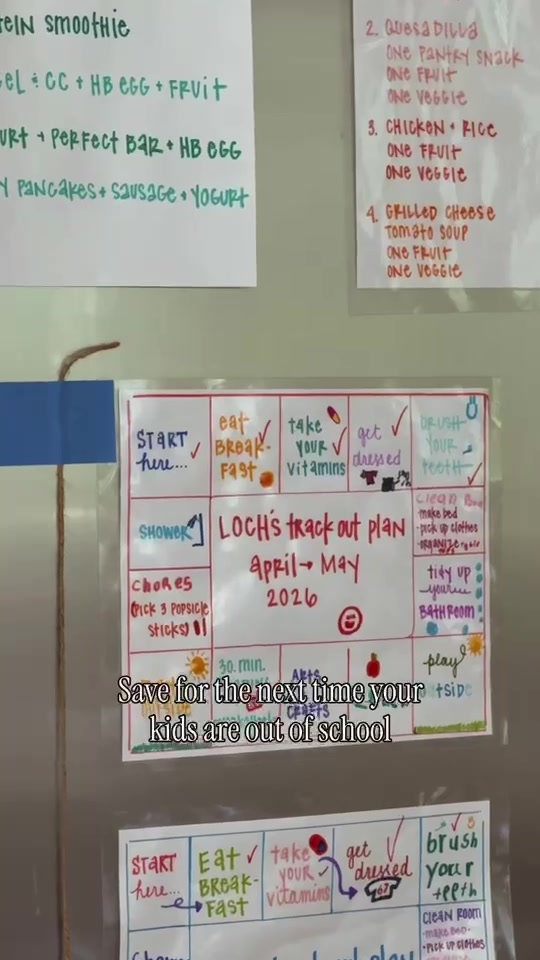 ein smoothie
el + CC + HB egg + Fruit
urt + Perfect Bar + HB egg
y pancakes + sausage + yogurt
2. Quesadilla
one pantry snack
one fruit
one veggie
3. Chicken + Rice
one fruit
one veggie
4. Grilled cheese
tomato soup
one fruit
one veggie
START
here...
eat
BREAK-
FAST
take
YOUR
vitamins
get
dressed
BRUSH
YOUR
teeth
SHOWER
LOCH's track out plan
april → May
2026
Clean
• make bed
• pick up clothes
• organize
CHORES
(PICK 3 POPSICLE
STICKS)
tidy up
your
BATHROOM
30. min.
ARTS
CRAFTS
play
tside
Save for the next time your
kids are out of school
START
here...
Eat
BREAK-
FAST
take
YOUR
vitamins
get
dressed
67
brush
your
teeth
CLEAN ROOM
• make bed •
• PICK UP CLOTHES